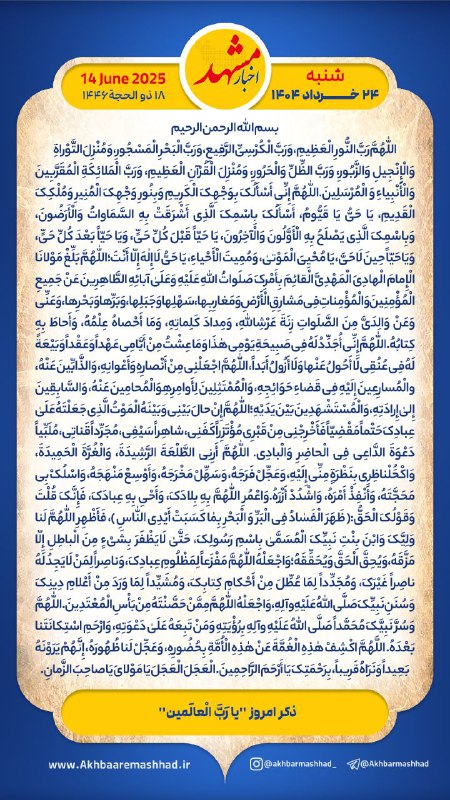 اخبار
مشهد
شنبه
۲۴ خـــرداد ۱۴۰۴
14 June 2025
۱۸ ذو الحجة ۱۴۴۶
بسم الله الرحمن الرحیم
اَللّٰهُمَّ رَبَّ النُّورِ الْعَظِیمِ، وَرَبَّ الْکُرْسِیِّ الرَّفِیعِ، وَرَبَّ الْبَحْرِ الْمَسْجُورِ، وَمُنْزِلَ التَّوْراةِ
وَالْإِنْجِیلِ وَالزَّبُورِ وَرَبَّ الظِّلِّ وَالْحَرُورِ، وَمُنْزِلَ الْقُرْآنِ الْعَظِیمِ، وَرَبَّ الْمَلائِکَةِ الْمُقَرَّبِینَ
وَالْأَنْبِیاءِ وَالْمُرْسَلِینَ، اَللّٰهُمَّ إِنِّی أَسْأَلُکَ بِوَجْهِکَ الْکَرِیمِ وَبِنُورِ وَجْهِکَ الْمُنِیرِ وَمُلْکِکَ
الْقَدِیمِ، یَا حَیُّ یَا قَیُّومُ، أَسْأَلُکَ بِاسْمِکَ الَّذِی أَشْرَقَتْ بِهِ السَّمَاوَاتُ وَالْأَرَضُونَ،
وَبِاسْمِکَ الَّذِی یَصْلَحُ بِهِ الْأَوَّلُونَ وَالْآخِرُونَ، یَا حَیّاً قَبْلَ کُلِّ حَیٍّ، وَیَا حَیّاً بَعْدَ کُلِّ حَیٍّ،
وَیَا حَیّاً حِینَ لَاحَیَّ، یَا مُحْیِیَ الْمَوْتیٰ، وَمُمِیتَ الْأَحْیاءِ، یَا حَیُّ لَاإِلٰهَ إِلّا أَنْتَ؛ اَللّٰهُمَّ بَلِّغْ مَوْلانَا
الْإِمامَ الْهادِیَ الْمَهْدِیَّ الْقائِمَ بِأَمْرِکَ صَلَواتُ اللّٰهِ عَلَیْهِ وَعَلَی آبائِهِ الطَّاهِرِینَ عَنْ جَمِیعِ
الْمُؤْمِنِینَ وَالْمُؤْمِناتِ فِی مَشارِقِ الْأَرْضِ وَمَغارِبِها، سَهْلِها وَجَبَلِها، وَبَرِّها وَبَحْرِها، وَعَنِّی
وَعَنْ وَالِدَیَّ مِنَ الصَّلَواتِ زِنَةَ عَرْشِ اللّٰهِ، وَمِدادَ کَلِماتِهِ، وَمَا أَحْصاهُ عِلْمُهُ، وَأَحاطَ بِهِ
کِتابُهُ. اَللّٰهُمَّ إِنِّی أُجَدِّدُ لَهُ فِی صَبِیحَةِ یَوْمِی هٰذَا وَمَا عِشْتُ مِنْ أَیَّامِی عَهْداً وَعَقْداً وَبَیْعَةً
لَهُ فِی عُنُقِی لَاأَحُولُ عَنْها وَلَا أَزُولُ أَبَداً، اَللّٰهُمَّ اجْعَلْنِی مِنْ أَنْصارِهِ وَأَعْوانِهِ، وَالذَّابِّینَ عَنْهُ،
وَالْمُسارِعِینَ إِلَیْهِ فِی قَضاءِ حَوَائِجِهِ، وَالْمُمْتَثِلِینَ لِأَوامِرِهِ وَالْمُحامِینَ عَنْهُ، وَالسَّابِقِینَ
إِلی إِرادَتِهِ، وَالْمُسْتَشْهَدِینَ بَیْنَ یَدَیْهِ؛ اَللّٰهُمَّ إِنْ حالَ بَیْنِی وَبَیْنَهُ الْمَوْتُ الَّذِی جَعَلْتَهُ عَلَی
عِبادِکَ حَتْماً مَقْضِیّاً فَأَخْرِجْنِی مِنْ قَبْرِی مُؤْتَزِراً کَفَنِی، شاهِراً سَیْفِی، مُجَرِّداً قَناتِی، مُلَبِّیاً
دَعْوَةَ الدَّاعِی فِی الْحاضِرِ وَالْبادِی. اَللّٰهُمَّ أَرِنِی الطَّلْعَةَ الرَّشِیدَةَ، وَالْغُرَّةَ الْحَمِیدَةَ،
وَاکْحُلْ ناظِرِی بِنَظْرَةٍ مِنِّی إِلَیْهِ، وَعَجِّلْ فَرَجَهُ، وَسَهِّلْ مَخْرَجَهُ، وَأَوْسِعْ مَنْهَجَهُ، وَاسْلُکْ بِی
مَحَجَّتَهُ، وَأَنْفِذْ أَمْرَهُ، وَاشْدُدْ أَزْرَهُ. وَاعْمُرِ اللّٰهُمَّ بِهِ بِلادَکَ، وَأَحْیِ بِهِ عِبادَکَ، فَإِنَّکَ قُلْتَ
وَقَوْلُکَ الْحَقُّ: ﴿ظَهَرَ الْفَسٰادُ فِی الْبَرِّ وَالْبَحْرِ بِمٰا کَسَبَتْ أَیْدِی النّٰاسِ﴾، فَأَظْهِرِ اللّٰهُمَّ لَنا
وَلِیَّکَ وَابْنَ بِنْتِ نَبِیِّکَ الْمُسَمَّی بِاسْمِ رَسُولِکَ، حَتَّیٰ لَا یَظْفَرَ بِشَیْءٍ مِنَ الْباطِلِ إِلّا
مَزَّقَهُ، وَیُحِقَّ الْحَقَّ وَیُحَقِّقَهُ؛ وَاجْعَلْهُ اللّٰهُمَّ مَفْزَعاً لِمَظْلُومِ عِبادِکَ، وَناصِراً لِمَنْ لَایَجِدُ لَهُ
ناصِراً غَیْرَکَ، وَمُجَدِّداً لِمَا عُطِّلَ مِنْ أَحْکامِ کِتابِکَ، وَمُشَیِّداً لِمَا وَرَدَ مِنْ أَعْلامِ دِینِکَ
وَسُنَنِ نَبِیِّکَ صَلَّی اللّٰهُ عَلَیْهِ وَآلِهِ، وَاجْعَلْهُ اللّٰهُمَّ مِمَّنْ حَصَّنْتَهُ مِنْ بَأْسِ الْمُعْتَدِینَ. اَللّٰهُمَّ
وَسُرَّ نَبِیَّکَ مُحَمَّداً صَلَّی اللّٰهُ عَلَیْهِ وَآلِهِ بِرُؤْیَتِهِ وَمَنْ تَبِعَهُ عَلَیٰ دَعْوَتِهِ، وَارْحَمِ اسْتِکانَتَنا
بَعْدَهُ. اَللّٰهُمَّ اکْشِفْ هٰذِهِ الْغُمَّةَ عَنْ هٰذِهِ الْأُمَّةِ بِحُضُورِهِ، وَعَجِّلْ لَنا ظُهُورَهُ، إِنَّهُمْ یَرَوْنَهُ
بَعِیداً وَنَرَاهُ قَرِیباً، بِرَحْمَتِکَ یَا أَرْحَمَ الرَّاحِمِینَ. الْعَجَلَ الْعَجَلَ یَا مَوْلایَ یَا صاحِبَ الزَّمانِ.
ذکر امروز "یا رَبَّ الْعالَمین"
www.Akhbaaremashhad.ir
@akhbarmashhad_
@Akhbarmashhad